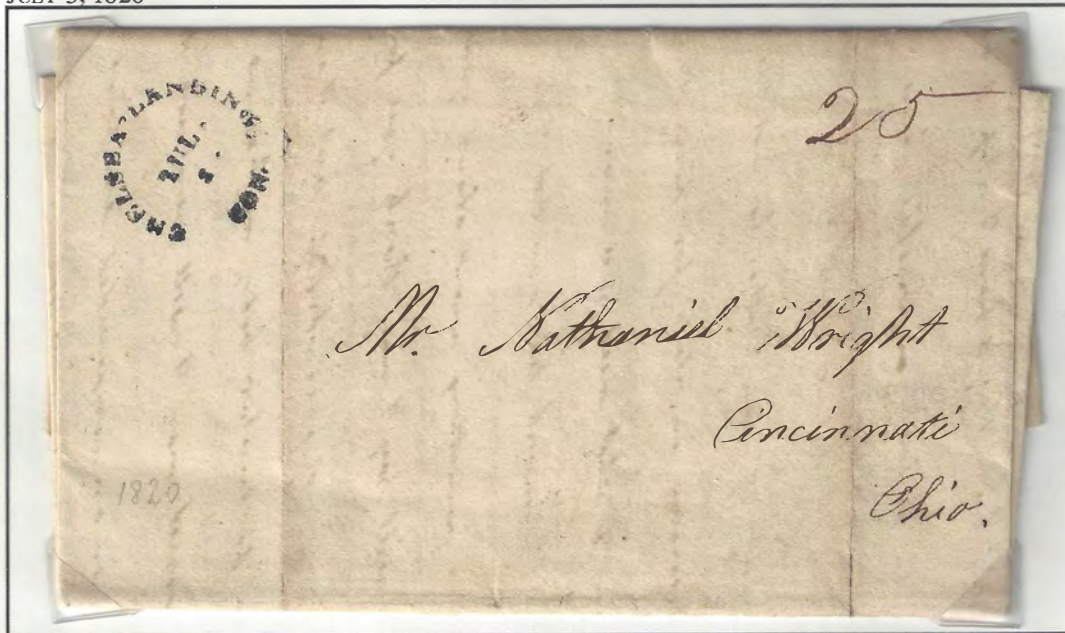 JULY 3, 1820
CHELSEA-LANDING CON
JUL.
25
Mr. Nathaniel Wright
Cincinnati
Ohio.
1820